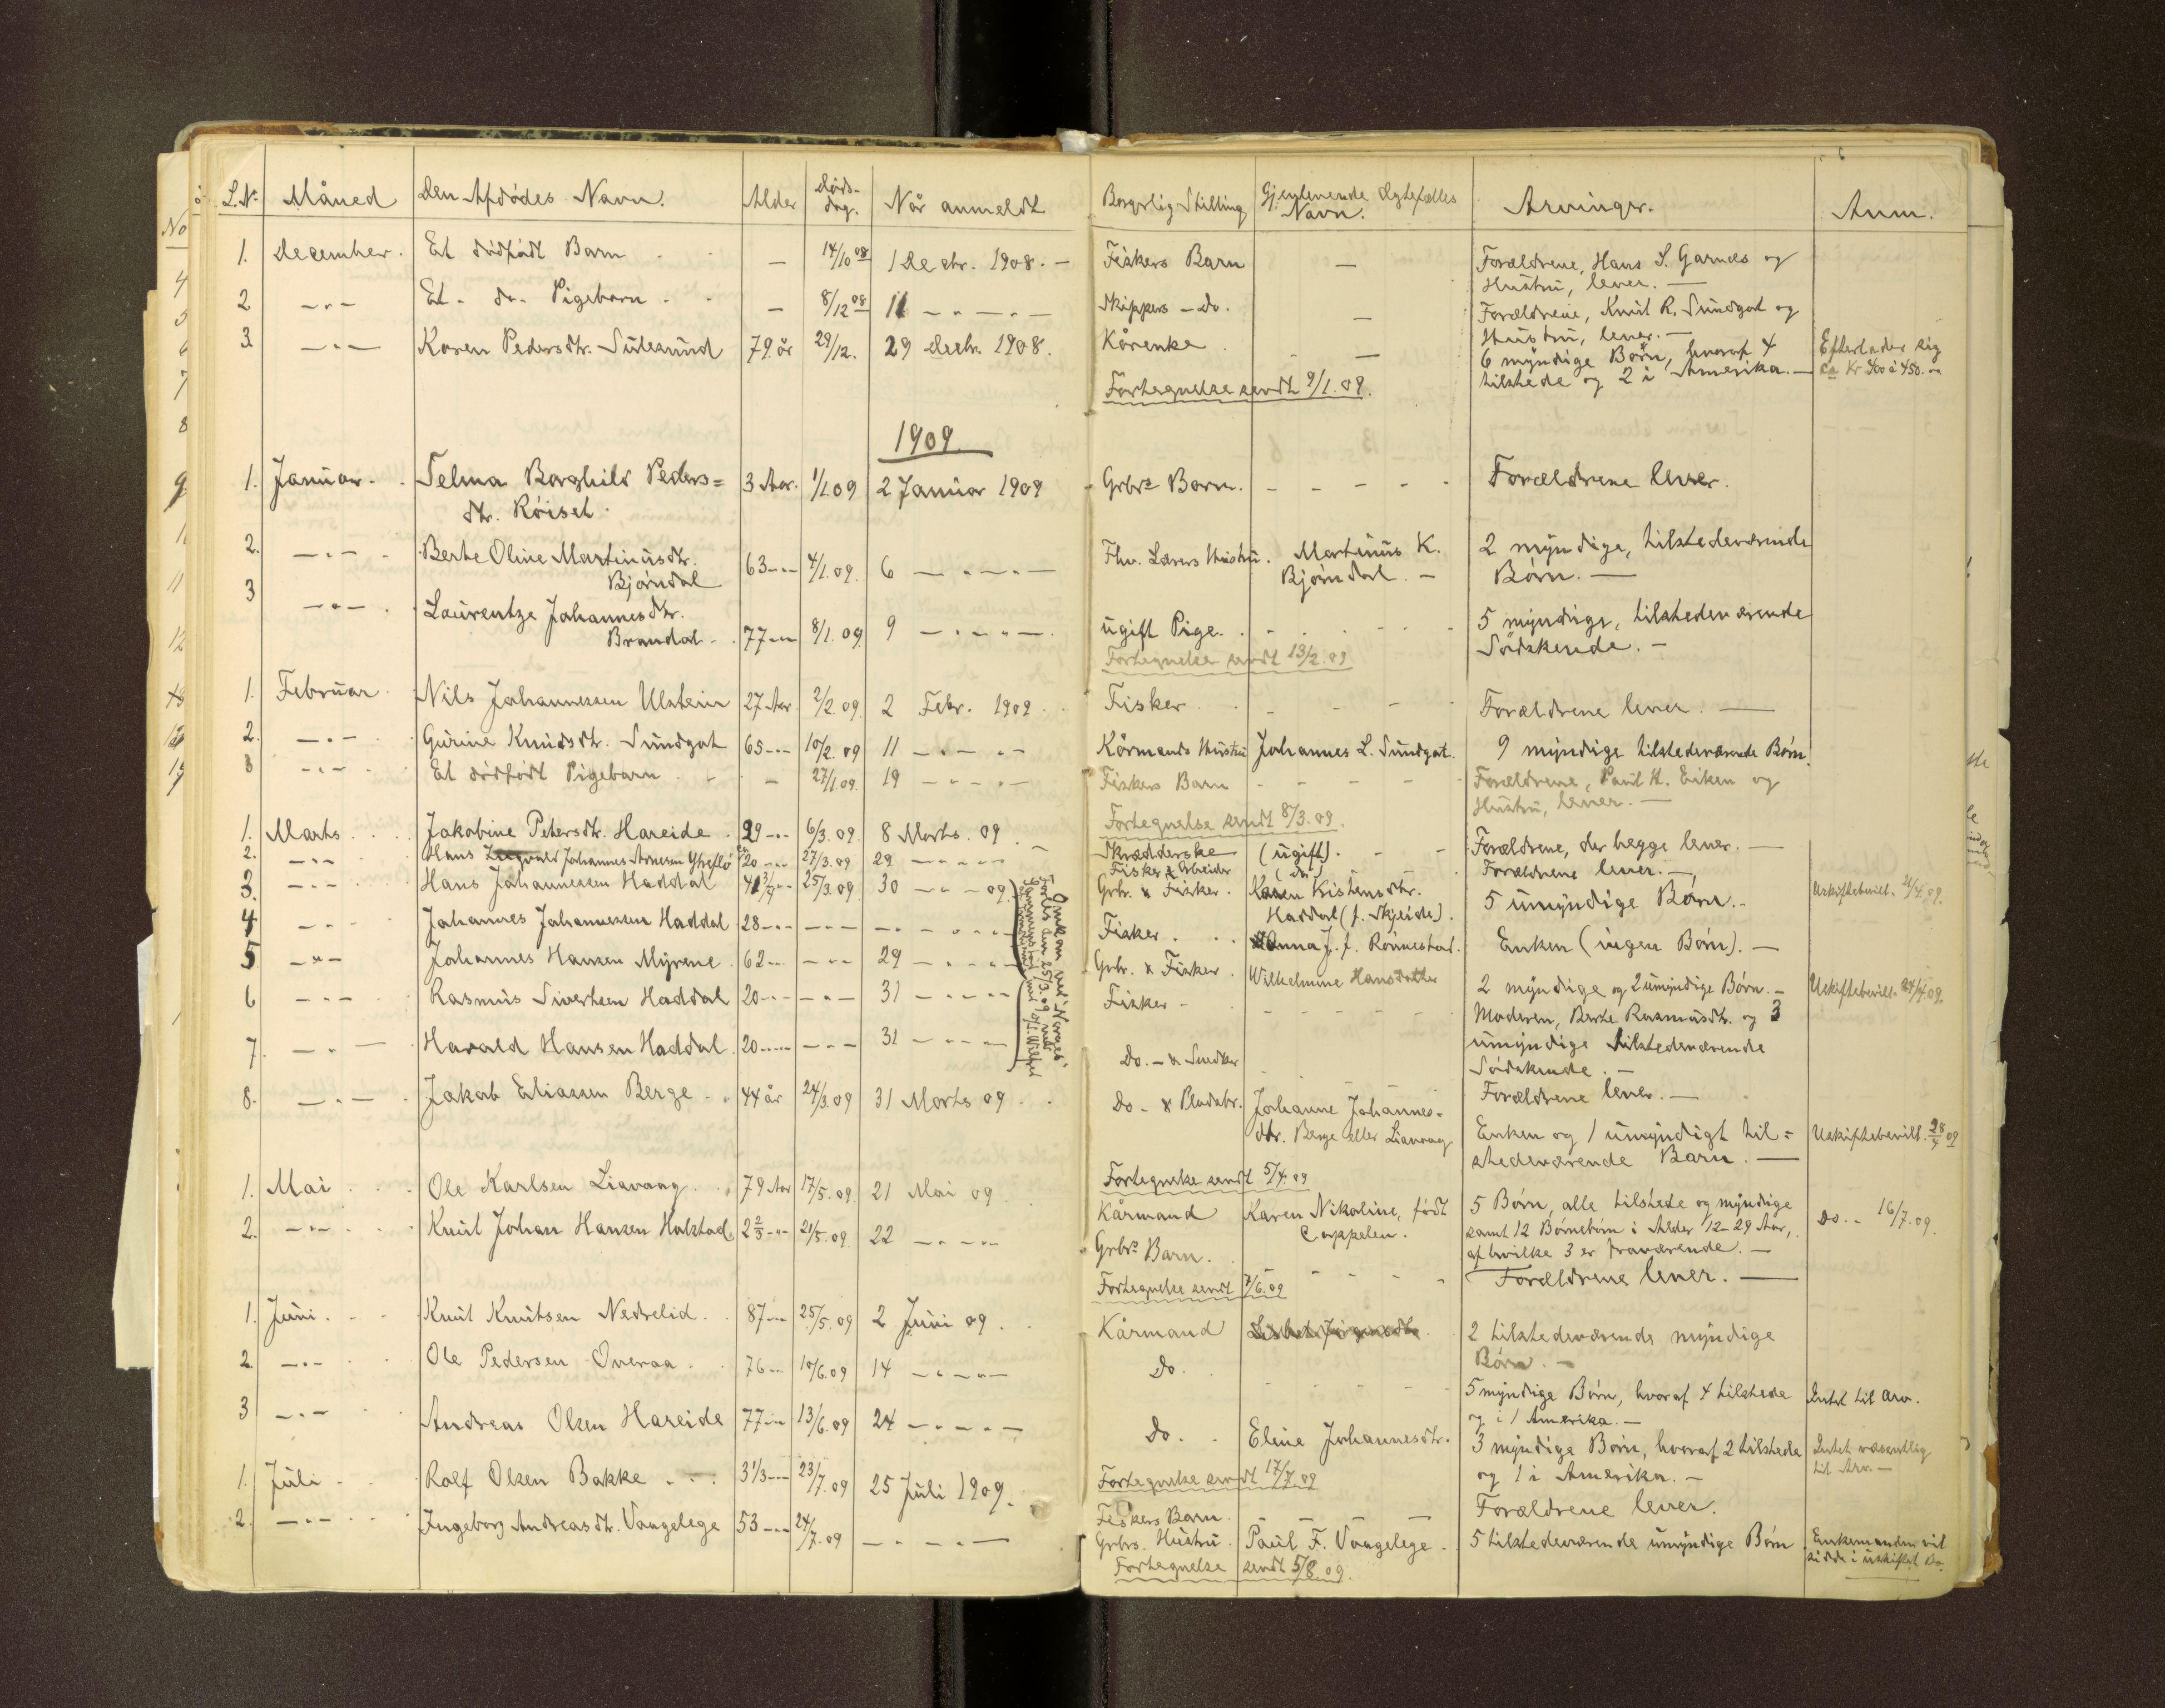 L.N. Måned Den Afdödes Navn. Alder Døds-dag. Når anmeldt Borgerlig Stilling Gjenlevende Ægtefælles Navn. Arvinger. Anm.
1. December. Et dödfödt Barn — 14/10 08 1 Decbr. 1908. — Fiskers Barn — Forældrene, Hans S. Garnes og
Hustru, lever. —
2. —„— Et do. Pigebarn — 8/12 08 11 —„—„— Skippers - Do. — Forældrene, Knut R. Sundgot og
Hustru, lever. —
3. —„— Karen Pedersdtr. Sulesund 79 år 29/12. 29 Decbr. 1908. Kårenke — 6 myndige Börn, hvoraf 4 Efterlader sig
tilstede og 2 i Amerika. — ca Kr 400 à 450.
Fortegnelse sendt 9/1.09.
1909.
1. Januar. Selma Borghild Peders= 3 Aar. 1/1.09 2 Januar 1909 Grbrs Barn. - - - - - Forældrene lever.
dtr. Röiset.
2. —„— Berte Oline Martinusdtr. 63 —„— 4/1.09. 6 —„—„— Fhv. Lærers Hustru. Martinus K. 2 myndige, tilstedeværende
Björndal Björndal. — Börn. —
3 —„— Laurentze Johannesdtr.
Brandal 77 —„— 8/1.09. 9 —„—„—. ugift Pige. 5 myndige, tilstedeværende
Södskende. —
Fortegnelse sendt 13/2.09
1. Februar Nils Johannessen Ulstein 27 Aar. 2/2.09. 2 Febr. 1909. Fisker. - - - Forældrene lever. —
2. —„— Gurine Knudsdtr. Sundgot 65 —„— 10/2.09 11 —„—„— Kårmands Hustru Johannes L. Sundgot. 9 myndige tilstedeværende Börn.
3 —„— Et dödfödt Pigebarn — 27/1.09. 19 —„—„— Fiskers Barn - - - - Forældrene, Paul H. Eiken og
Hustru, lever. —
Fortegnelse sendt 8/3.09.
1. Marts Jakobine Petersdtr. Hareide 29 —„— 6/3.09. 8 Marts. 09. Skrædderske (ugift). - - Forældrene, der begge lever. —
2. —„— Hans Johannes Arnesen Ytreflö 20 —„— 27/3.09 29 —„—„— Fisker & Arbeider (do) Forældrene lever. —
3. —„— Hans Johannessen Haddal 25/3.09. 30 —„— 09. Grbr. & Fisker. Karen Kistensdtr. 5 umyndige Börn. — Uskiftebevill.
Haddal (f. Skjeide).
4 —„— Johannes Johannessen Haddal 28 —„— —„— —„—„— Fisker. Anna J. f. Rönnestad. Enken (ingen Börn). —
5 —„— Johannes Hansen Myrene 62 —„— —„— 29 —„—„— Grbr. & Fisker. Wilhelmine Hansdatter 2 myndige og 2 umyndige Börn. — Uskiftebevill. 24/4 09.
6 —„— Rasmus Sivertsen Haddal 20 —„— —„— 31 —„—„— Fisker - - - - - Moderen, Berte Rasmusdtr. og 3
umyndige tilstedeværende
Södskende. —
7. —„— Harald Hansen Haddal 20 —„— —„— 31 —„—„— Do. — & Snedker Forældrene lever. —
Omkom ved
Forlis den 25/3.09 ved
8. —„— Jakob Eliassen Berge 44 år 24/3.09 31 Marts 09. Do. & Pladsbr. Johanne Johannes-
dtr. Berge eller Liavaag Enken og 1 umyndigt til= Uskiftebevill. 28/4 09
stedeværende Barn. —
Fortegnelse sendt 5/4.09
1. Mai Ole Karlsen Liavaag 79 Aar 17/5.09. 21 Mai 09. Kårmand Karen Nikoline, födt 5 Börn, alle tilstede og myndige Do. - 16/7.09.
Cappelen. samt 12 Börnebörn i Alder 12-29 Aar,
af hvilke 3 er fraværende. —
2. —„— Knut Johan Hansen Halstad 2 2/3 —„— 21/5.09. 22 —„—„— Grbrs Barn. - - - - Forældrene lever. —
Fortegnelse sendt 7/6.09
1. Juni. Knut Knutsen Nedrelid. 87 —„— 25/5.09 2 Juni 09. Kårmand 2 tilstedeværende myndige
Börn. —
2. —„— Ole Pedersen Overaa 76 —„— 10/6.09 14 —„—„— Do. - - - - 5 myndige Börn, hvoraf 4 tilstede Intet til Arv.
og i 1 Amerika. —
3 —„— Andreas Olsen Hareide 77 —„— 13/6.09 24 —„—„— Do. Eline Johannesdtr. 3 myndige Börn, hvoraf 2 tilstede Intet væsentlig
og 1 i Amerika. — til Arv. —
Fortegnelse sendt 17/7.09
1. Juli Rolf Olsen Bakke 3 1/3 —„— 23/7.09 25 Juli 1909. Fiskers Barn. — — Forældrene lever.
2. —„— Ingeborg Andreasdtr. Vaagelege 53 —„— 24/7.09 —„—„— Grbrs. Hustru. Paul F. Vaagelege. 5 tilstedeværende umyndige Börn Enkemanden vil
sidde i uskiftet Bo.
Fortegnelse sendt 5/8.09.